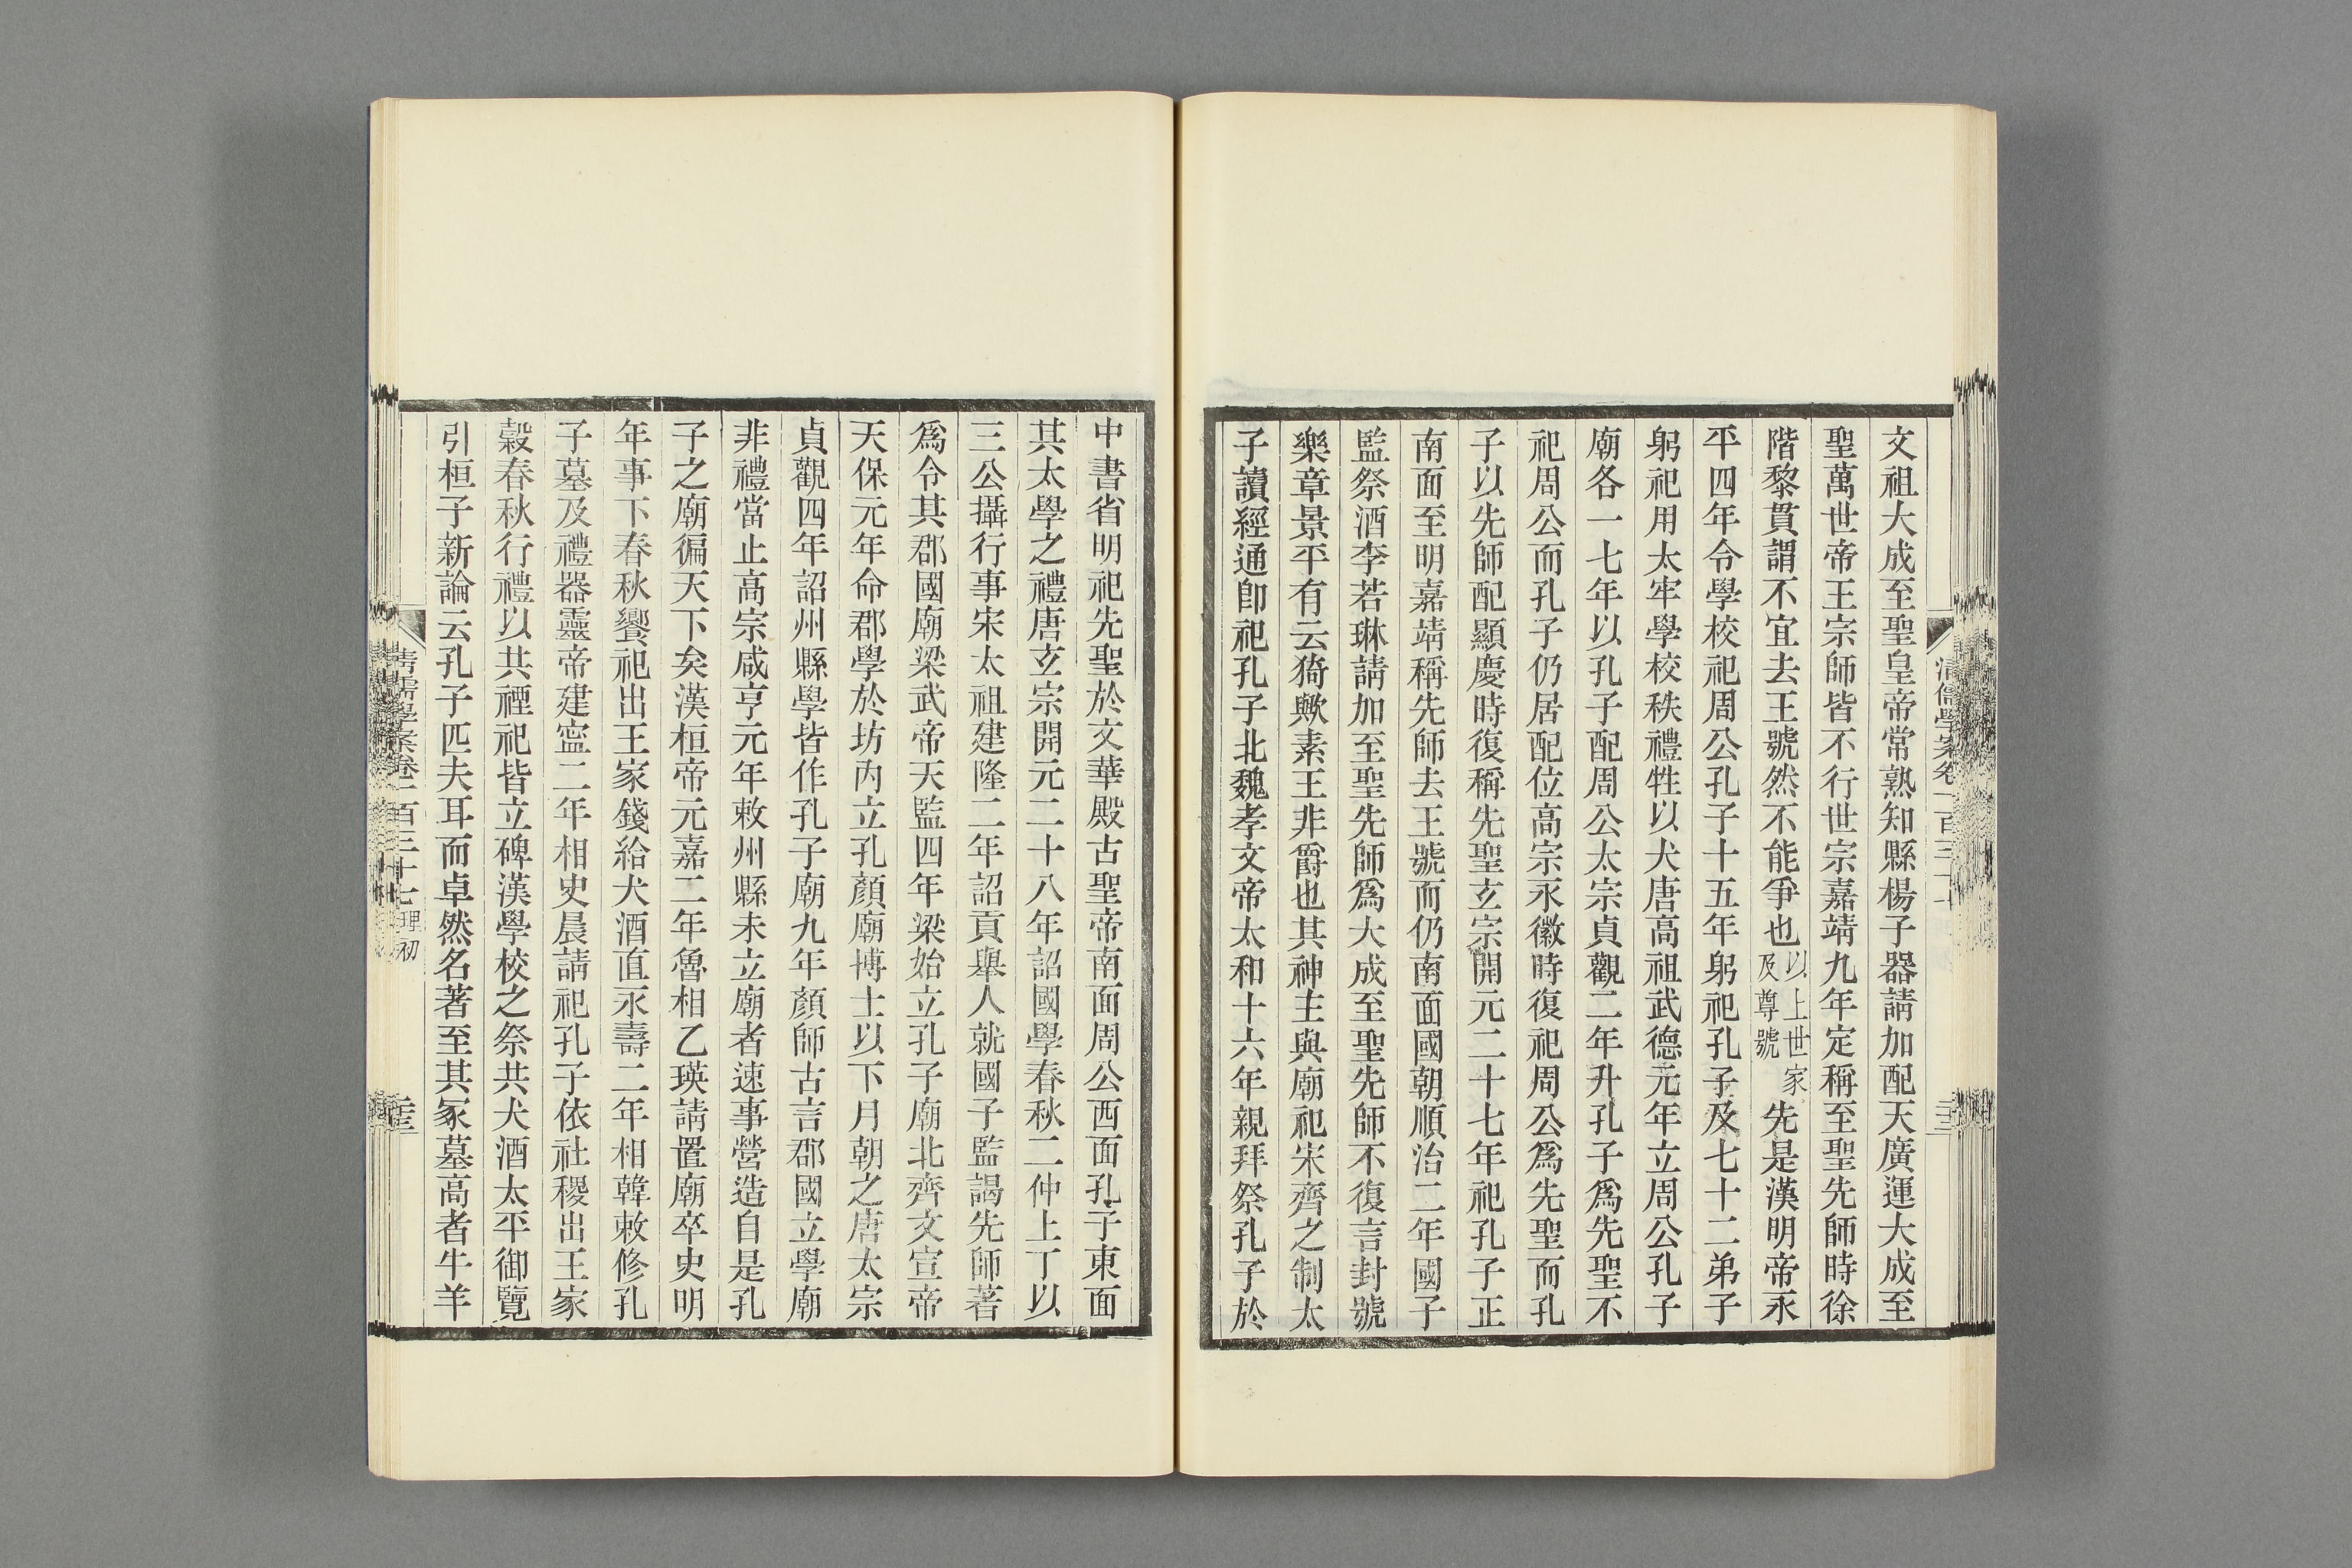 文祖大成至聖皇帝常熟知縣楊子器請加配天廣運大成至
聖萬世帝王宗師皆不行世宗嘉靖九年定稱至聖先師時徐
階黎貫謂不宜去王號然不能爭也以上世家及尊號先是漢明帝永
平四年令學校祀周公孔子十五年躬祀孔子及七十二弟子
躬祀用太牢學校秩禮牲以犬唐高祖武德元年立周公孔子
廟各一七年以孔子配周公太宗貞觀二年升孔子爲先聖不
祀周公而孔子仍居配位高宗永徽時復祀周公爲先聖而孔
子以先師配顯慶時復稱先聖玄宗開元二十七年祀孔子正
南面至明嘉靖稱先師去王號而仍南面國朝順治二年國子
監祭酒李若琳請加至聖先師爲大成至聖先師不復言封號
樂章景平有云猗歟素王非爵也其神主與廟祀宋齊之制太
子讀經通卽祀孔子北魏孝文帝太和十六年親拜祭孔子於
中書省明祀先聖於文華殿古聖帝南面周公西面孔子東面
其太學之禮唐玄宗開元二十八年詔國學春秋二仲上丁以
三公攝行事宋太祖建隆二年詔貢舉人就國子監謁先師著
爲令其郡國廟梁武帝天監四年梁始立孔子廟北齊文宣帝
天保元年命郡學於坊內立孔顏廟博士以下月朝之唐太宗
貞觀四年詔州縣學皆作孔子廟九年顏師古言郡國立學廟
非禮當止高宗咸亨元年敕州縣未立廟者速事營造自是孔
子之廟徧天下矣漢桓帝元嘉二年魯相乙瑛請置廟卒史明
年事下春秋饗祀出王家錢給犬酒直永壽二年相韓敕修孔
子墓及禮器靈帝建寧二年相史晨請祀孔子依社稷出王家
穀春秋行禮以共禋祀皆立碑漢學校之祭共犬酒太平御覽
引桓子新論云孔子匹夫耳而卓然名著至其冢墓高者牛羊
清儒學案卷一百三十七 理初